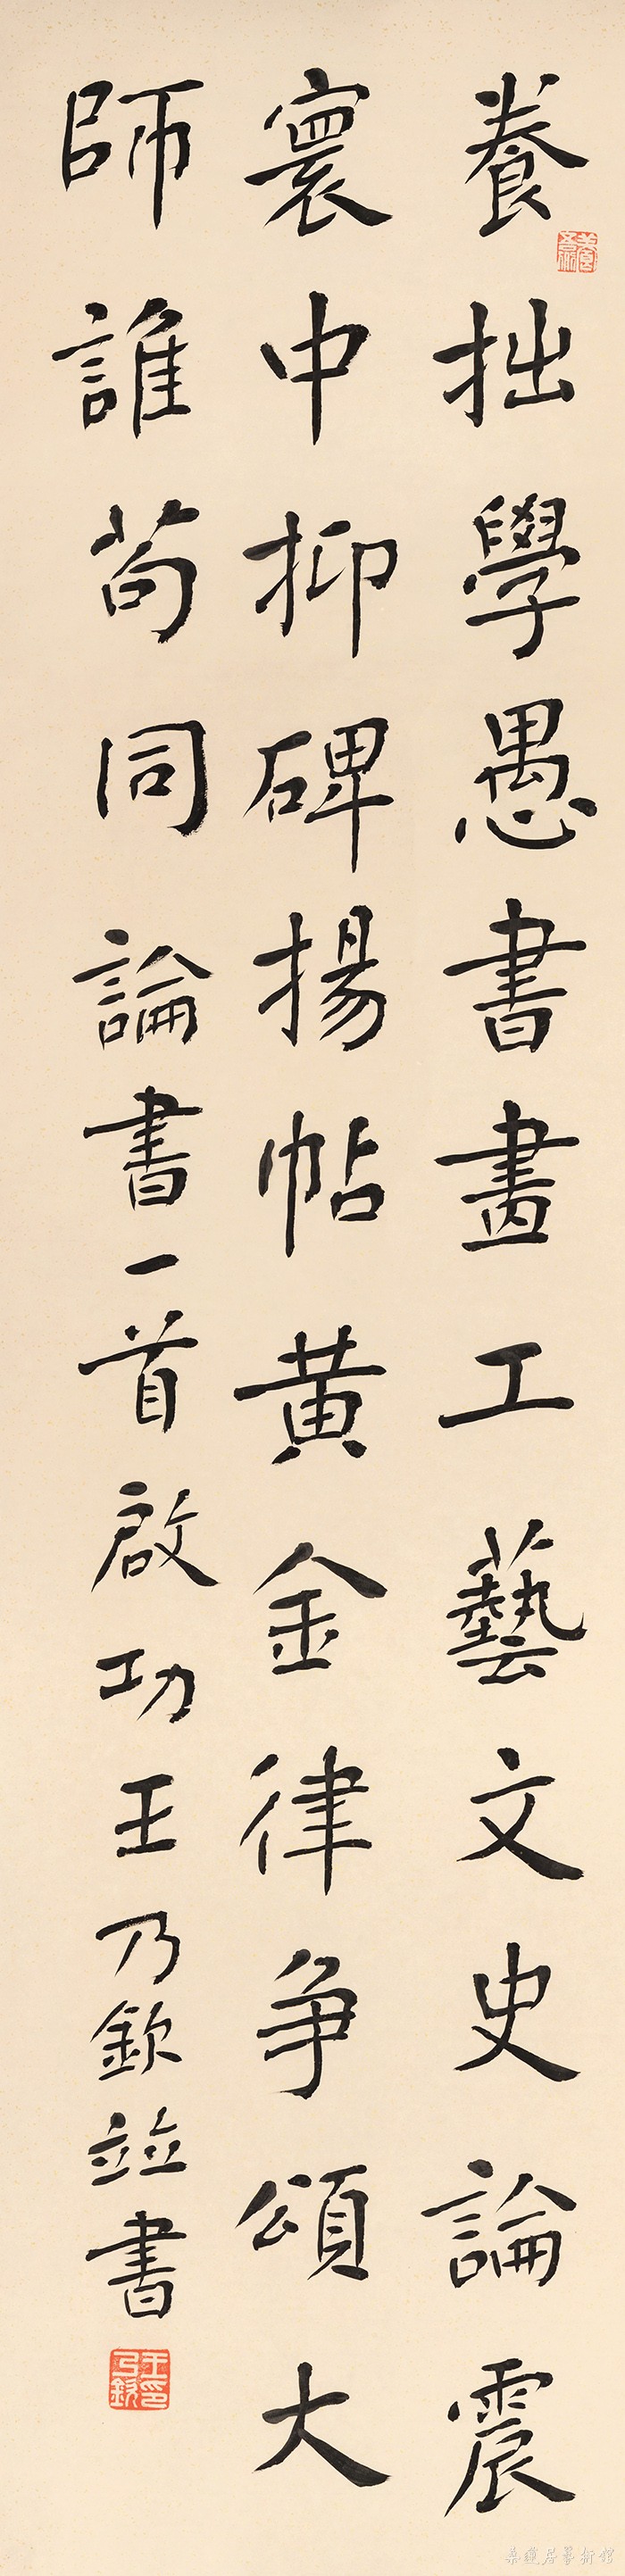 養拙學愚書畫工藝文史論震
寰中抑碑揚帖黃金律爭頌大
師誰苟同論書一首啟功王乃欽並書
王乃欽印